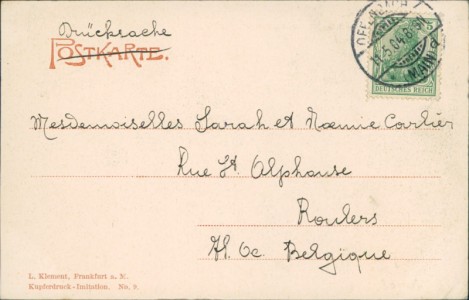 Drücksache
POSTKARTE.
DEUTSCHES REICH
Mesdemoiselles Sarah et Noemie Carlier
Rue St. Alphonse
Roulers
Belgique
L. Klement, Frankfurt a. M.
Kupferdruck-Imitation. No. 9.